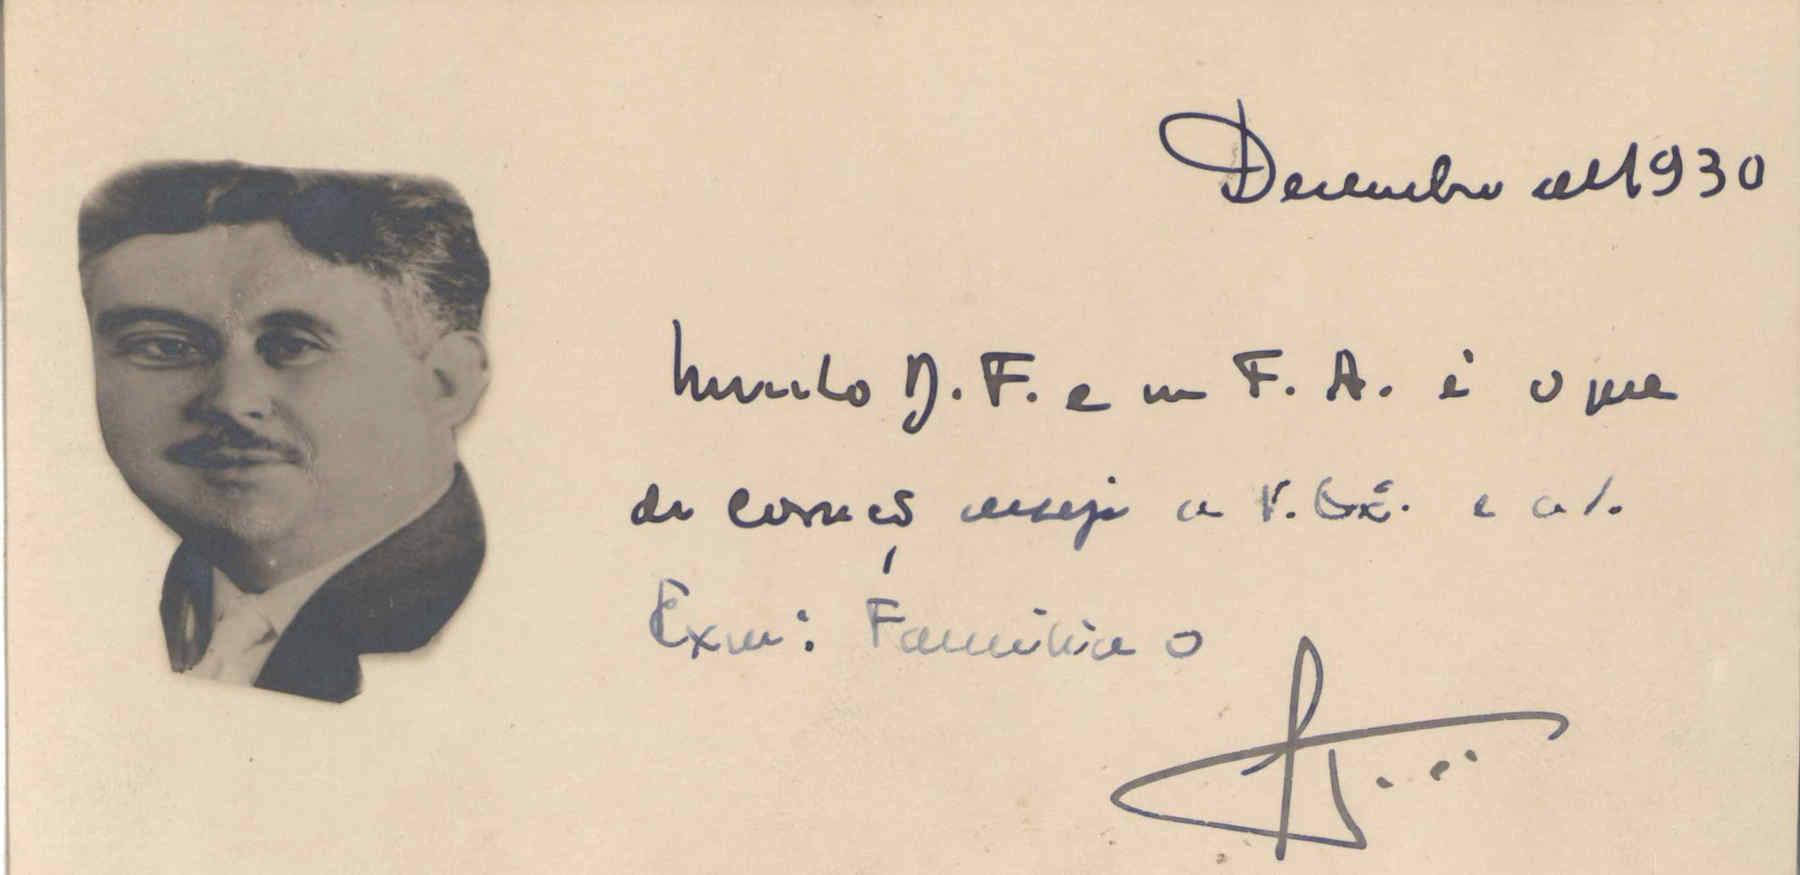 Dezembro de 1930
Muito B. F. e um F. A. é o que
de coração deseja a V. Exª. e a s/.
Exmª: Familia o